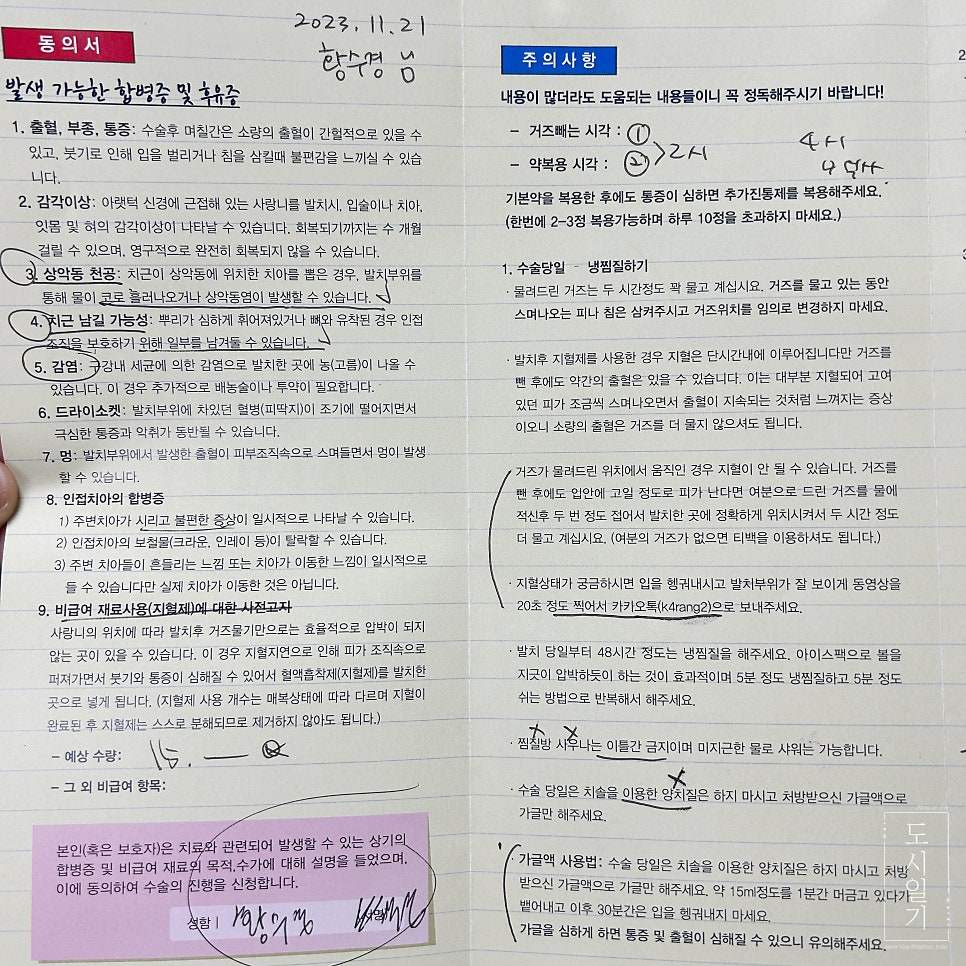 2023. 11. 21
황수경 님
동의서
발생 가능한 합병증 및 후유증
1. 출혈, 부종, 통증: 수술후 며칠간은 소량의 출혈이 간헐적으로 있을 수
있고, 붓기로 인해 입을 벌리거나 침을 삼킬때 불편감을 느끼실 수 있습
니다.
2. 감각이상: 아랫턱 신경에 근접해 있는 사랑니를 발치시, 입술이나 치아,
잇몸 및 혀의 감각이상이 나타날 수 있습니다. 회복되기까지는 수 개월
걸릴 수 있으며, 영구적으로 완전히 회복되지 않을 수 있습니다.
3. 상악동 천공: 치근이 상악동에 위치한 치아를 뽑은 경우, 발치부위를
통해 물이 코로 흘러나오거나 상악동염이 발생할 수 있습니다.
4. 치근 남길 가능성: 뿌리가 심하게 휘어져있거나 뼈와 유착된 경우 인접
조직을 보호하기 위해 일부를 남겨둘 수 있습니다.
5. 감염: 구강내 세균에 의한 감염으로 발치한 곳에 농(고름)이 나올 수
있습니다. 이 경우 추가적으로 배농술이나 투약이 필요합니다.
6. 드라이소켓: 발치부위에 차있던 혈병(피딱지)이 조기에 떨어지면서
극심한 통증과 악취가 동반될 수 있습니다.
7. 멍: 발치부위에서 발생한 출혈이 피부조직속으로 스며들면서 멍이 발생
할 수 있습니다.
8. 인접치아의 합병증
1) 주변치아가 시리고 불편한 증상이 일시적으로 나타날 수 있습니다.
2) 인접치아의 보철물(크라운, 인레이 등)이 탈락할 수 있습니다.
3) 주변 치아들이 흔들리는 느낌 또는 치아가 이동한 느낌이 일시적으로
들 수 있습니다만 실제 치아가 이동한 것은 아닙니다.
9. 비급여 재료사용(지혈제)에 대한 사전고지
사랑니의 위치에 따라 발치후 거즈물기만으로는 효율적으로 압박이 되지
않는 곳이 있을 수 있습니다. 이 경우 지혈지연으로 인해 피가 조직속으로
퍼져가면서 붓기와 통증이 심해질 수 있어서 혈액흡착제(지혈제)를 발치한
곳으로 넣게 됩니다. (지혈제 사용 개수는 매복상태에 따라 다르며 지혈이
완료된 후 지혈제는 스스로 분해되므로 제거하지 않아도 됩니다.)
– 예상 수량:
– 그 외 비급여 항목:
본인(혹은 보호자)은 치료와 관련되어 발생할 수 있는 상기의
합병증 및 비급여 재료의 목적,수가에 대해 설명을 들었으며,
이에 동의하여 수술의 진행을 신청합니다.
성함 | 황수경
주의사항
내용이 많더라도 도움되는 내용들이니 꼭 정독해주시기 바랍니다!
– 거즈빼는 시각 : ①
– 약복용 시각 : ② > 2시
4시
기본약을 복용한 후에도 통증이 심하면 추가진통제를 복용해주세요.
(한번에 2–3정 복용가능하며 하루 10정을 초과하지 마세요.)
1. 수술당일 – 냉찜질하기
· 물려드린 거즈는 두 시간정도 꽉 물고 계십시요. 거즈를 물고 있는 동안
스며나오는 피나 침은 삼켜주시고 거즈위치를 임의로 변경하지 마세요.
· 발치후 지혈제를 사용한 경우 지혈은 단시간내에 이루어집니다만 거즈를
뺀 후에도 약간의 출혈은 있을 수 있습니다. 이는 대부분 지혈되어 고여
있던 피가 조금씩 스며나오면서 출혈이 지속되는 것처럼 느껴지는 증상
이오니 소량의 출혈은 거즈를 더 물지 않으셔도 됩니다.
거즈가 물려드린 위치에서 움직인 경우 지혈이 안 될 수 있습니다. 거즈를
뺀 후에도 입안에 고일 정도로 피가 난다면 여분으로 드린 거즈를 물에
적신후 두 번 정도 접어서 발치한 곳에 정확하게 위치시켜서 두 시간 정도
더 물고 계십시요. (여분의 거즈가 없으면 티백을 이용하셔도 됩니다.)
· 지혈상태가 궁금하시면 입을 헹궈내시고 발치부위가 잘 보이게 동영상을
20초 정도 찍어서 카카오톡(k4rang2)으로 보내주세요.
· 발치 당일부터 48시간 정도는 냉찜질을 해주세요. 아이스팩으로 볼을
지긋이 압박하듯이 하는 것이 효과적이며 5분 정도 냉찜질하고 5분 정도
쉬는 방법으로 반복해서 해주세요.
· 찜질방 사우나는 이틀간 금지이며 미지근한 물로 샤워는 가능합니다.
· 수술 당일은 치솔을 이용한 양치질은 하지 마시고 처방받으신 가글액으로
가글만 해주세요.
· 가글액 사용법: 수술 당일은 치솔을 이용한 양치질은 하지 마시고 처방
받으신 가글액으로 가글만 해주세요. 약 15ml정도를 1분간 머금고 있다가
뱉어내고 이후 30분간은 입을 헹궈내지 마세요.
가글을 심하게 하면 통증 및 출혈이 심해질 수 있으니 유의해주세요.
도시일기